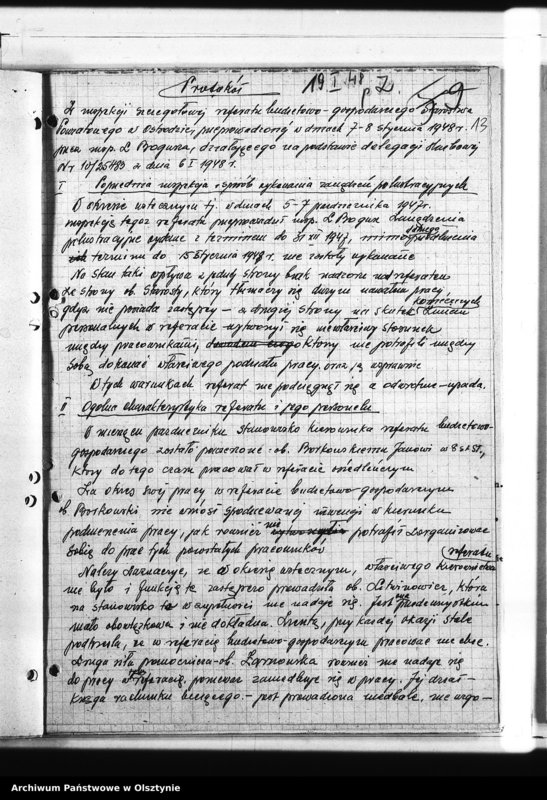 Protokół
19 I 48 r.
z inspekcji szczegółowej referatu budżetowo-gospodarczego Starostwa
Powiatowego w Ostródzie, przeprowadzonej w dniach 7-8 stycznia 1948 r. 13
przez insp. L. Boguna, działającego na podstawie delegacji służbowej
Nr 10/25483 z dnia 6 I 1948 r.
I Poprzednia inspekcja i sposób wykonania zarządzeń polustracyjnych
W okresie wstecznym tj. w dniach 5-7 października 1947 r.
inspekcję tegoż referatu przeprowadził insp. L. Bogun. Zarządzenia
polustracyjne wydane z terminem do 31 XII 1947, mimo dalszego przedłużenia
terminu do 15 stycznia 1948 r. nie zostały wykonane
Na stan taki wpływa z jednej strony brak nadzoru nad referatem
ze strony ob. Starosty, który tłumaczy się dużym nawałem pracy
gdyż nie posiada zastępcy – z drugiej strony na skutek koniecznych zmian
personalnych w referacie wytworzył się niewłaściwy stosunek
między pracownikami, którzy nie potrafili między
sobą dokonać właściwego podziału pracy, oraz ją usprawnić
W tych warunkach referat nie podciągnął się a odwrotnie – upada.
II Ogólna charakterystyka referatu i jego personelu
W miesiącu październiku stanowisko kierownika referatu budżetowo-
gospodarczego zostało powierzone ob. Borkowskiemu Janowi w 8 st. sł.,
który do tego czasu pracował w referacie osiedleńczym
Za okres swej pracy w referacie budżetowo-gospodarczym
ob. Borkowski nie wniósł spodziewanej inwencji w kierunku
podniesienia pracy, jak również nie potrafił zorganizować
sobie do prac tych pozostałych pracowników
Należy zaznaczyć, że w okresie wstecznym, właściwego kierownictwa referatu
nie było i funkcję tę zastępczo prowadziła ob. Litwinowicz, która
na stanowisko to w zupełności nie nadaje się. Jest
mało obowiązkowa i nie dokładna. Zresztą, przy każdej okazji stale
podkreśla, że w referacie budżetowo-gospodarczym pracować nie chce.
Druga siła pomocnicza – ob. Żarnowska również nie nadaje się
do pracy w referacie, ponieważ zaniedbuje się w pracy. Jej dział –
księga rachunku bieżącego – jest prowadzona niedbale, nie uzgo-
Archiwum Państwowe w Olsztynie